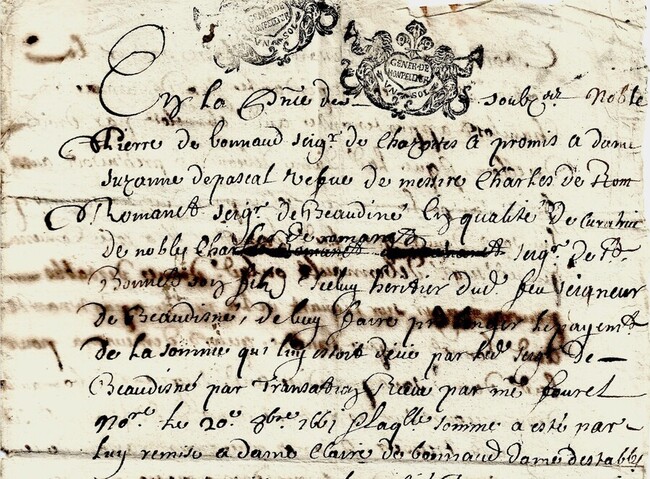 GENER·DE
MONPELLIER
VN SOL
GENER·DE
MONPELLIER
VN SOL
En la pñce des soubz.nez Noble
Pierre de bonnaud seigr. de Chazotes a promis a dame
suzanne depascal vefue de messire Charles de Rom
Romanet seigr. de Beaudiné En qualité de Curatrice
de romanet
de noble Char seigr. de St.
Bonnet son filz heritier dud. feu seigneur
de Beaudisné, de luy faire prolonger le payemt.
de la somme qui luy estoit deüe par led. seigr. de
Beaudisné par Transaction Receue par me fouret
Nore. le 20e. 8bre. 1661 laqlle. somme a esté par
luy remise a dame Claire de bonnaud dame destables